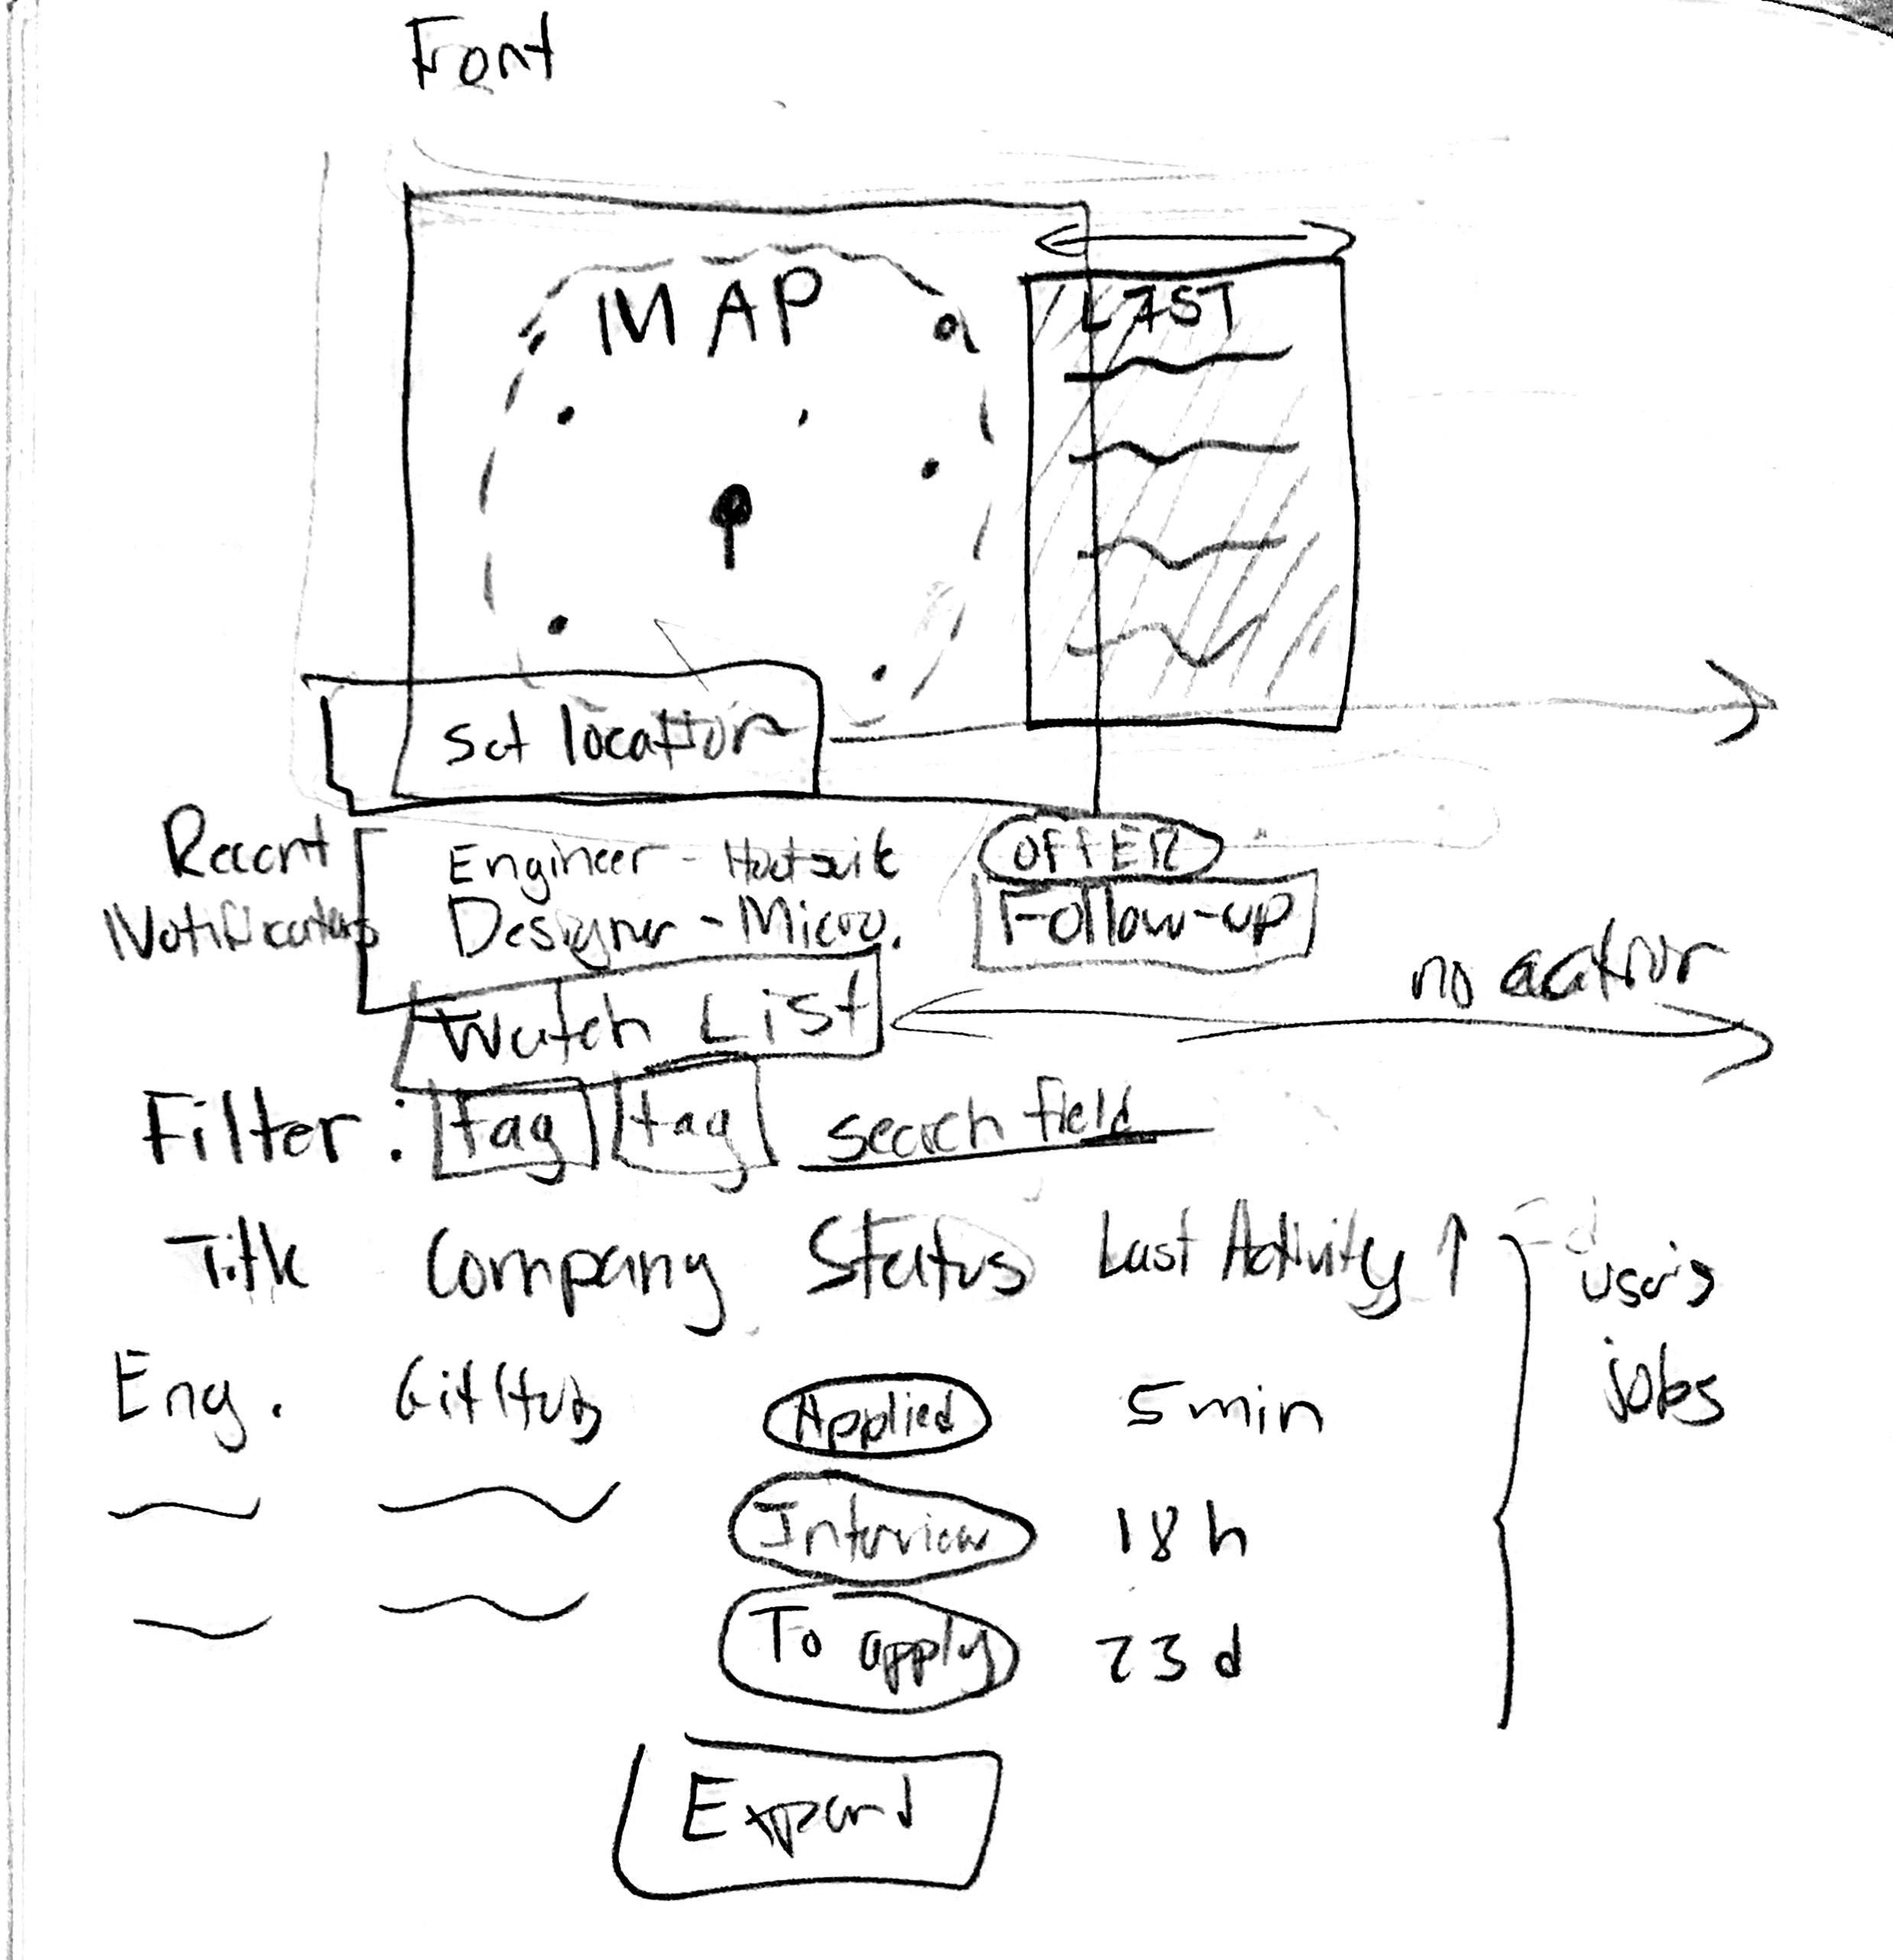 Font
MAP
LIST
set location
Recent
Notifications
Engineer - Hootsuite
OFFER
Designer - Micro.
Follow-up
no action
Watch List
Filter: tag tag search field
Title Company Status Last Activity ↑
user's
jobs
Eng. GitHub Applied 5 min
Interview 18 h
To apply 23 d
Expand